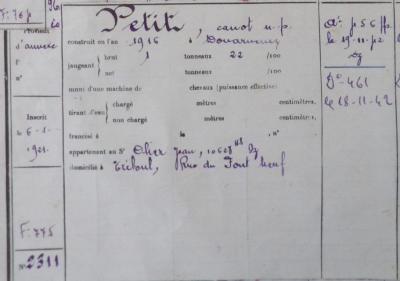 F: 76 p
d'annexe
f°
n°
Inscrit
le 6-1-
1921.
F. 775
N° 2311
Petit, canot n.p.
construit en l'an 1916 à Douarnenez
jaugeant brut 1 tonneaux 22 /100
net tonneaux /100
muni d'une machine de chevaux (puissance effective)
tirant d'eau chargé mètres centimètres,
non chargé mètres centimètres,
francisé à le , n°
appartenant au Sr Jean, 10628 Dz
domicilié à Tréboul, Rue du
p 56
le 19-11-
Dz
D° 461
le 18-11-42